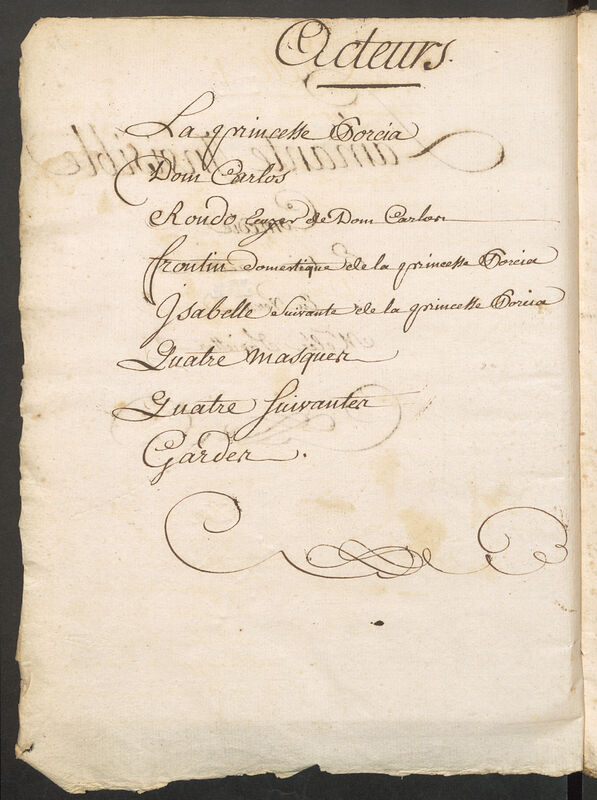 Acteurs.
La princesse Porcia
Dom Carlos
Rondo Ecuyer de Dom Carlos
frontin domestique de la princesse Porcia
Isabelle suivante de la princesse Porcia
Quatre masques
Quatre suivantes
Gardes.